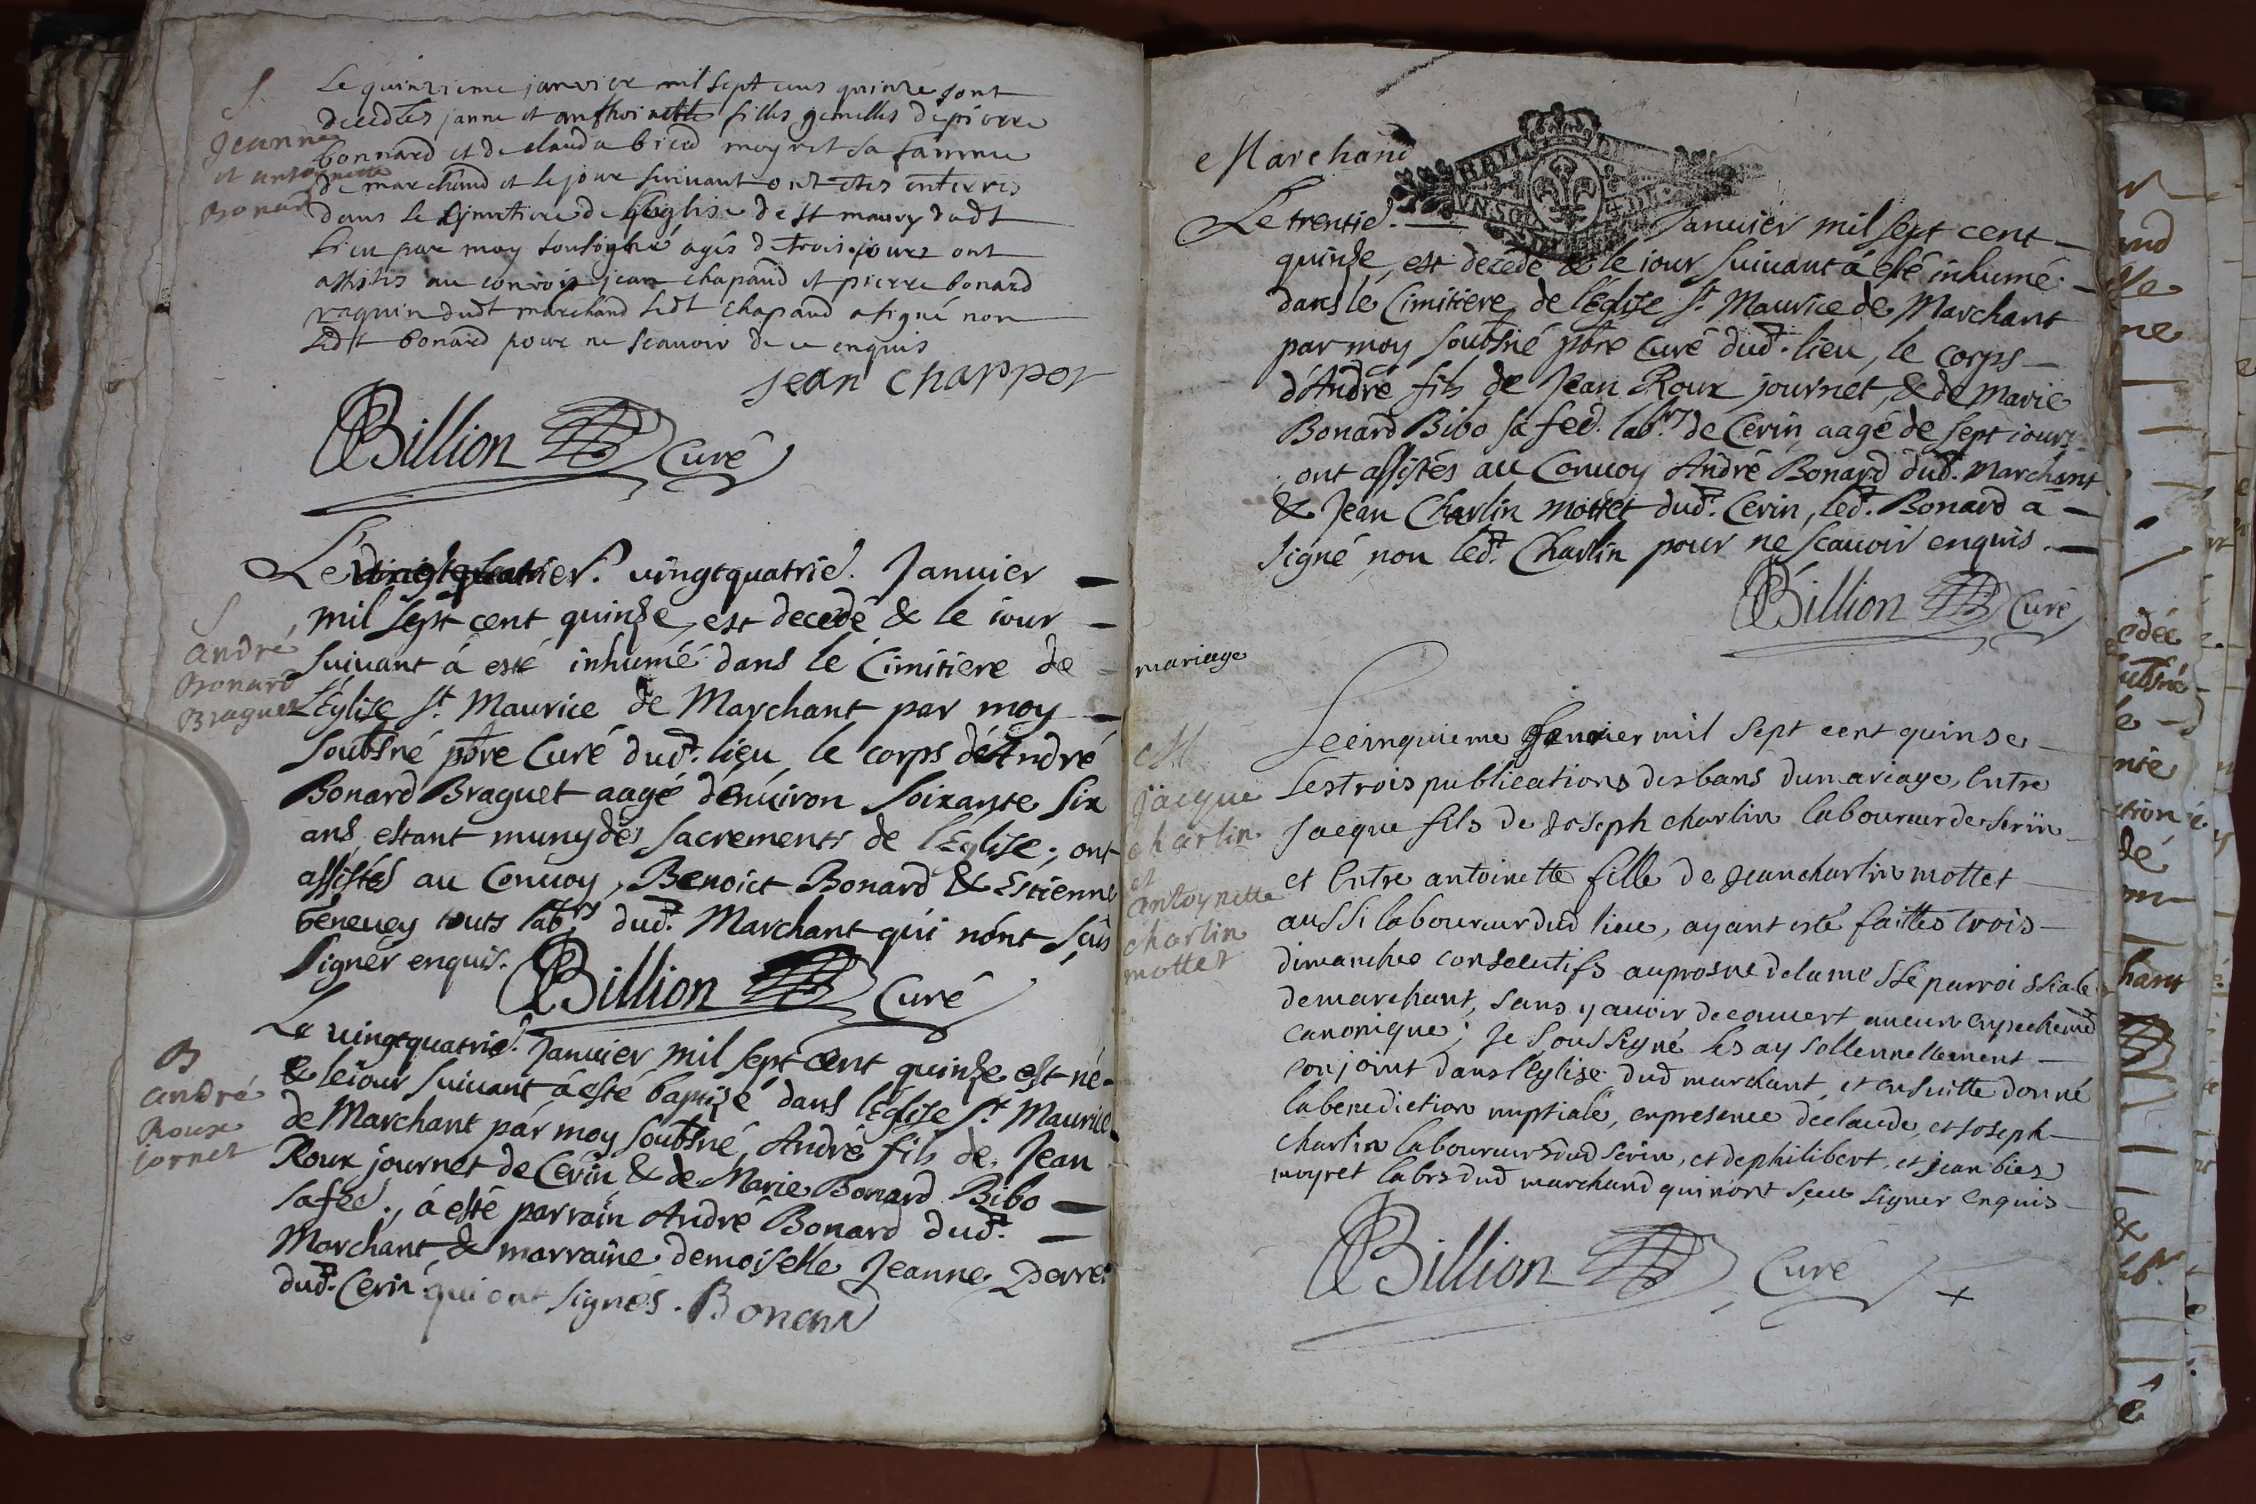 S.
Jeanne
et antoinette
Bonard
Le quinzieme janvier mil sept cens quinze sont
decedées janne et anthoinette filles gemelles de pierre
bonnard et de clauda bied moyret sa famme
de marchand et le jour suivant ont etes enterres
dans le cymetiere de l'eglise de st maury dudt
lieu par moy soussigné agés de trois jours ont
assistes au convois jean chapaud et pierre bonard
raquin dudt marchand ledt chapaud a signé non
ledt bonard pour ne scauoir de ce enquis
Jean Chappot
Billion Curé
S
andré
Bonard
Braguet
Le vingtquatrié. Januier
mil sept cent quinze, est decedé & le iour
suiuant á esté inhumé dans le Cimitiere de
l'Eglise St. Maurice de Marchant par moy
soubsné pbre Curé dud. lieu, le corps d'André
Bonard Braguet aagé d'enuiron soixante six
ans estant muny des sacrements de l'Eglise; ont
assistés au Conuoy, Benoict Bonard & Estienne
beneuey touts labrs dud. Marchant qui n'ont sçeus
signer enquis.
Billion Curé
B
andré
Roux
Jornet
Le vingtquatrié. Januier mil sept cent quinze est né
& le iour suiuant á esté baptizé dans l'Eglise St. Maurice
de Marchant par moy soubsné, André fils de Jean
Roux journet de Cerin & de Marie Bonard Bibo
sa fée., á esté parrain André Bonard dud.
Marchant & marraine demoiselle Jeanne
dud. Cerin qui ont signés. Bonard
Marchand
Le trentié. Januier mil sept cent
quinze, est decedé & le iour suiuant á esté inhumé
dans le Cimitiere de l'Eglise St. Maurice de Marchant
par moy soubsné pbre Curé dud. lieu, le corps
d'André fils de Jean Roux journet, & de Marie
Bonard Bibo sa feé. labrs de Cerin, aagé de sept iours
ont assistés au Conuoy André Bonard dud. Marchant
& Jean Charlin mottet dud. Cerin, led. Bonard a
signé non led. Charlin pour ne scauoir enquis.
Billion Curé
mariage
M
jacque
charlin
et
antoynette
charlin
mottet
Le cinquieme feurier mil sept cent quinse
les trois publications des bans du mariage, entre
jacque fils de Joseph charlin laboureur de serin
et entre antoinette fille de Jean charlin mottet
aussi laboureur dud lieu, ayant esté faittes trois
dimanches consecutifs au prosne de la messe parroissiale
de marchant, sans y auoir decouuert aucun empechemt
canonique; Je soussigné les ay sollennellement
conjoint dans l'eglise dud marchant, et ensuitte donné
la benediction nuptiale, en presence de claude, et Joseph
charlin laboureurs dud serin, et de philibert, et jean bied
moyret labrs dud marchand qui n'ont sçeu signer enquis
Billion Curé